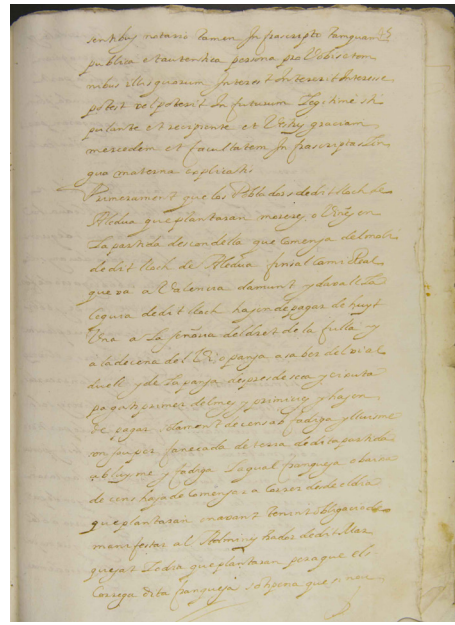 sentibus notario tamen Infrascripto tamquam 95
publica et autentica persona pro Vobis et om
nibus illis quorum Interest Intererit Interesse
potest vel poterit In futurum Legitime sti
pulante et recipiente et Vestris graciam
mercedem et facultatem Infrascriptas Lin
gua materna explicatis
Primerament que los Pobladors de dit lloch de
Aledua que plantaran moreres o Vinyes en
La partida des candella que comensa del moli
de dit lloch de Aledua fins al cami Real
que va a Valencia damunt y davall La
sequia de dit lloch hajen de pagar de huyt
Una a La Señoria del dret de la fulla y
a la dotsena del Vi o pansa a saber del vi al
y de La pansa despres de seca y
pagats primer delmes y primicies y hajen
de pagar de cens ab fadiga y lluisme
un sou per fanecada de terra de dita partida
lluysme y fadiga La qual franquesa
de cens haja de Comensar a Correr desde el dia
que plantaran en avant tenint obligacio de
manifestar al Administrador de dit Mar
quesat Lo dia que plantaran peraque els
Correga dita franquesa sots pena que si non